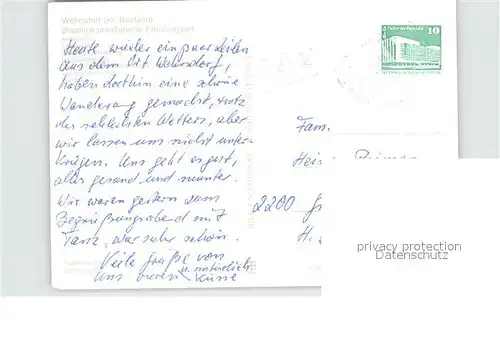 Wehrsdorf Kr. Bautzen
Staatlich anerkannter Erholungsort
Heute wieder ein paar Zeilen
aus dem Ort Wehrsdorf,
haben dorthin eine schöne
Wanderung gemacht, trotz
des schlechten Wetters, aber
wir lassen uns nicht unter-
kriegen. Uns geht es gut,
alles gesund und munter.
Wir waren gestern zum
Begrüßungsabend mit
Tanz, war sehr schön.
Viele Grüße von
uns u. natürlich
Küsse
10
Fam.
2200
H.
privacy protection
Datenschutz